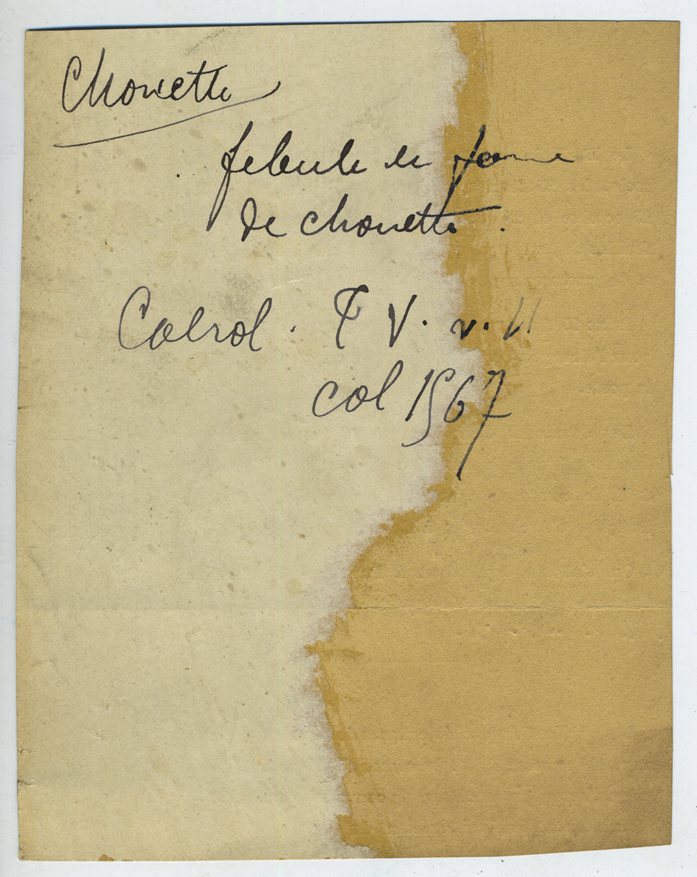 Chouette
fibule en forme
de chouette.
Cabrol. T V. v. II
col 1567